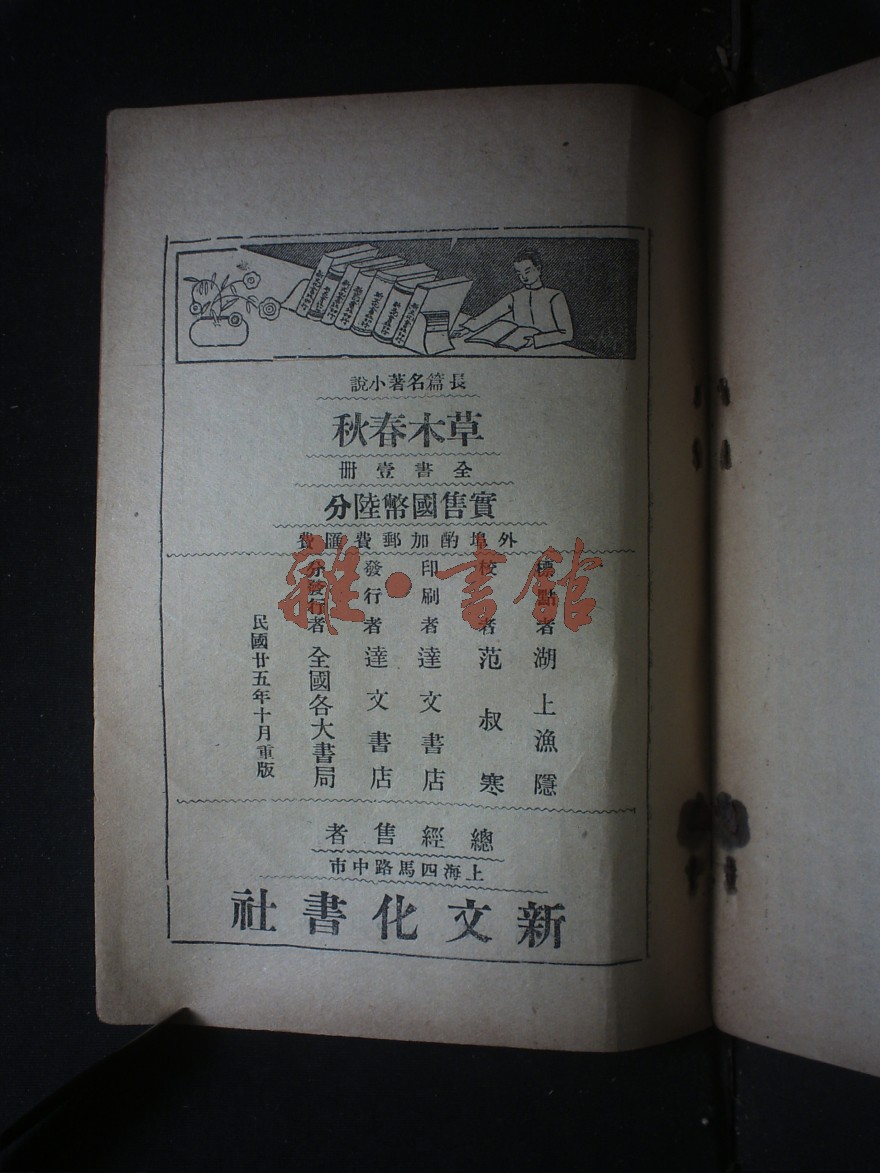 長篇名著小說
草木春秋
全書壹冊
實售國幣陸分
外埠酌加郵費匯費
標點者湖上漁隱
校者范叔寒
印刷者達文書店
發行者達文書店
分發行者全國各大書局
民國廿五年十月重版
總經售者
上海四馬路中市
新文化書社
雜·書館